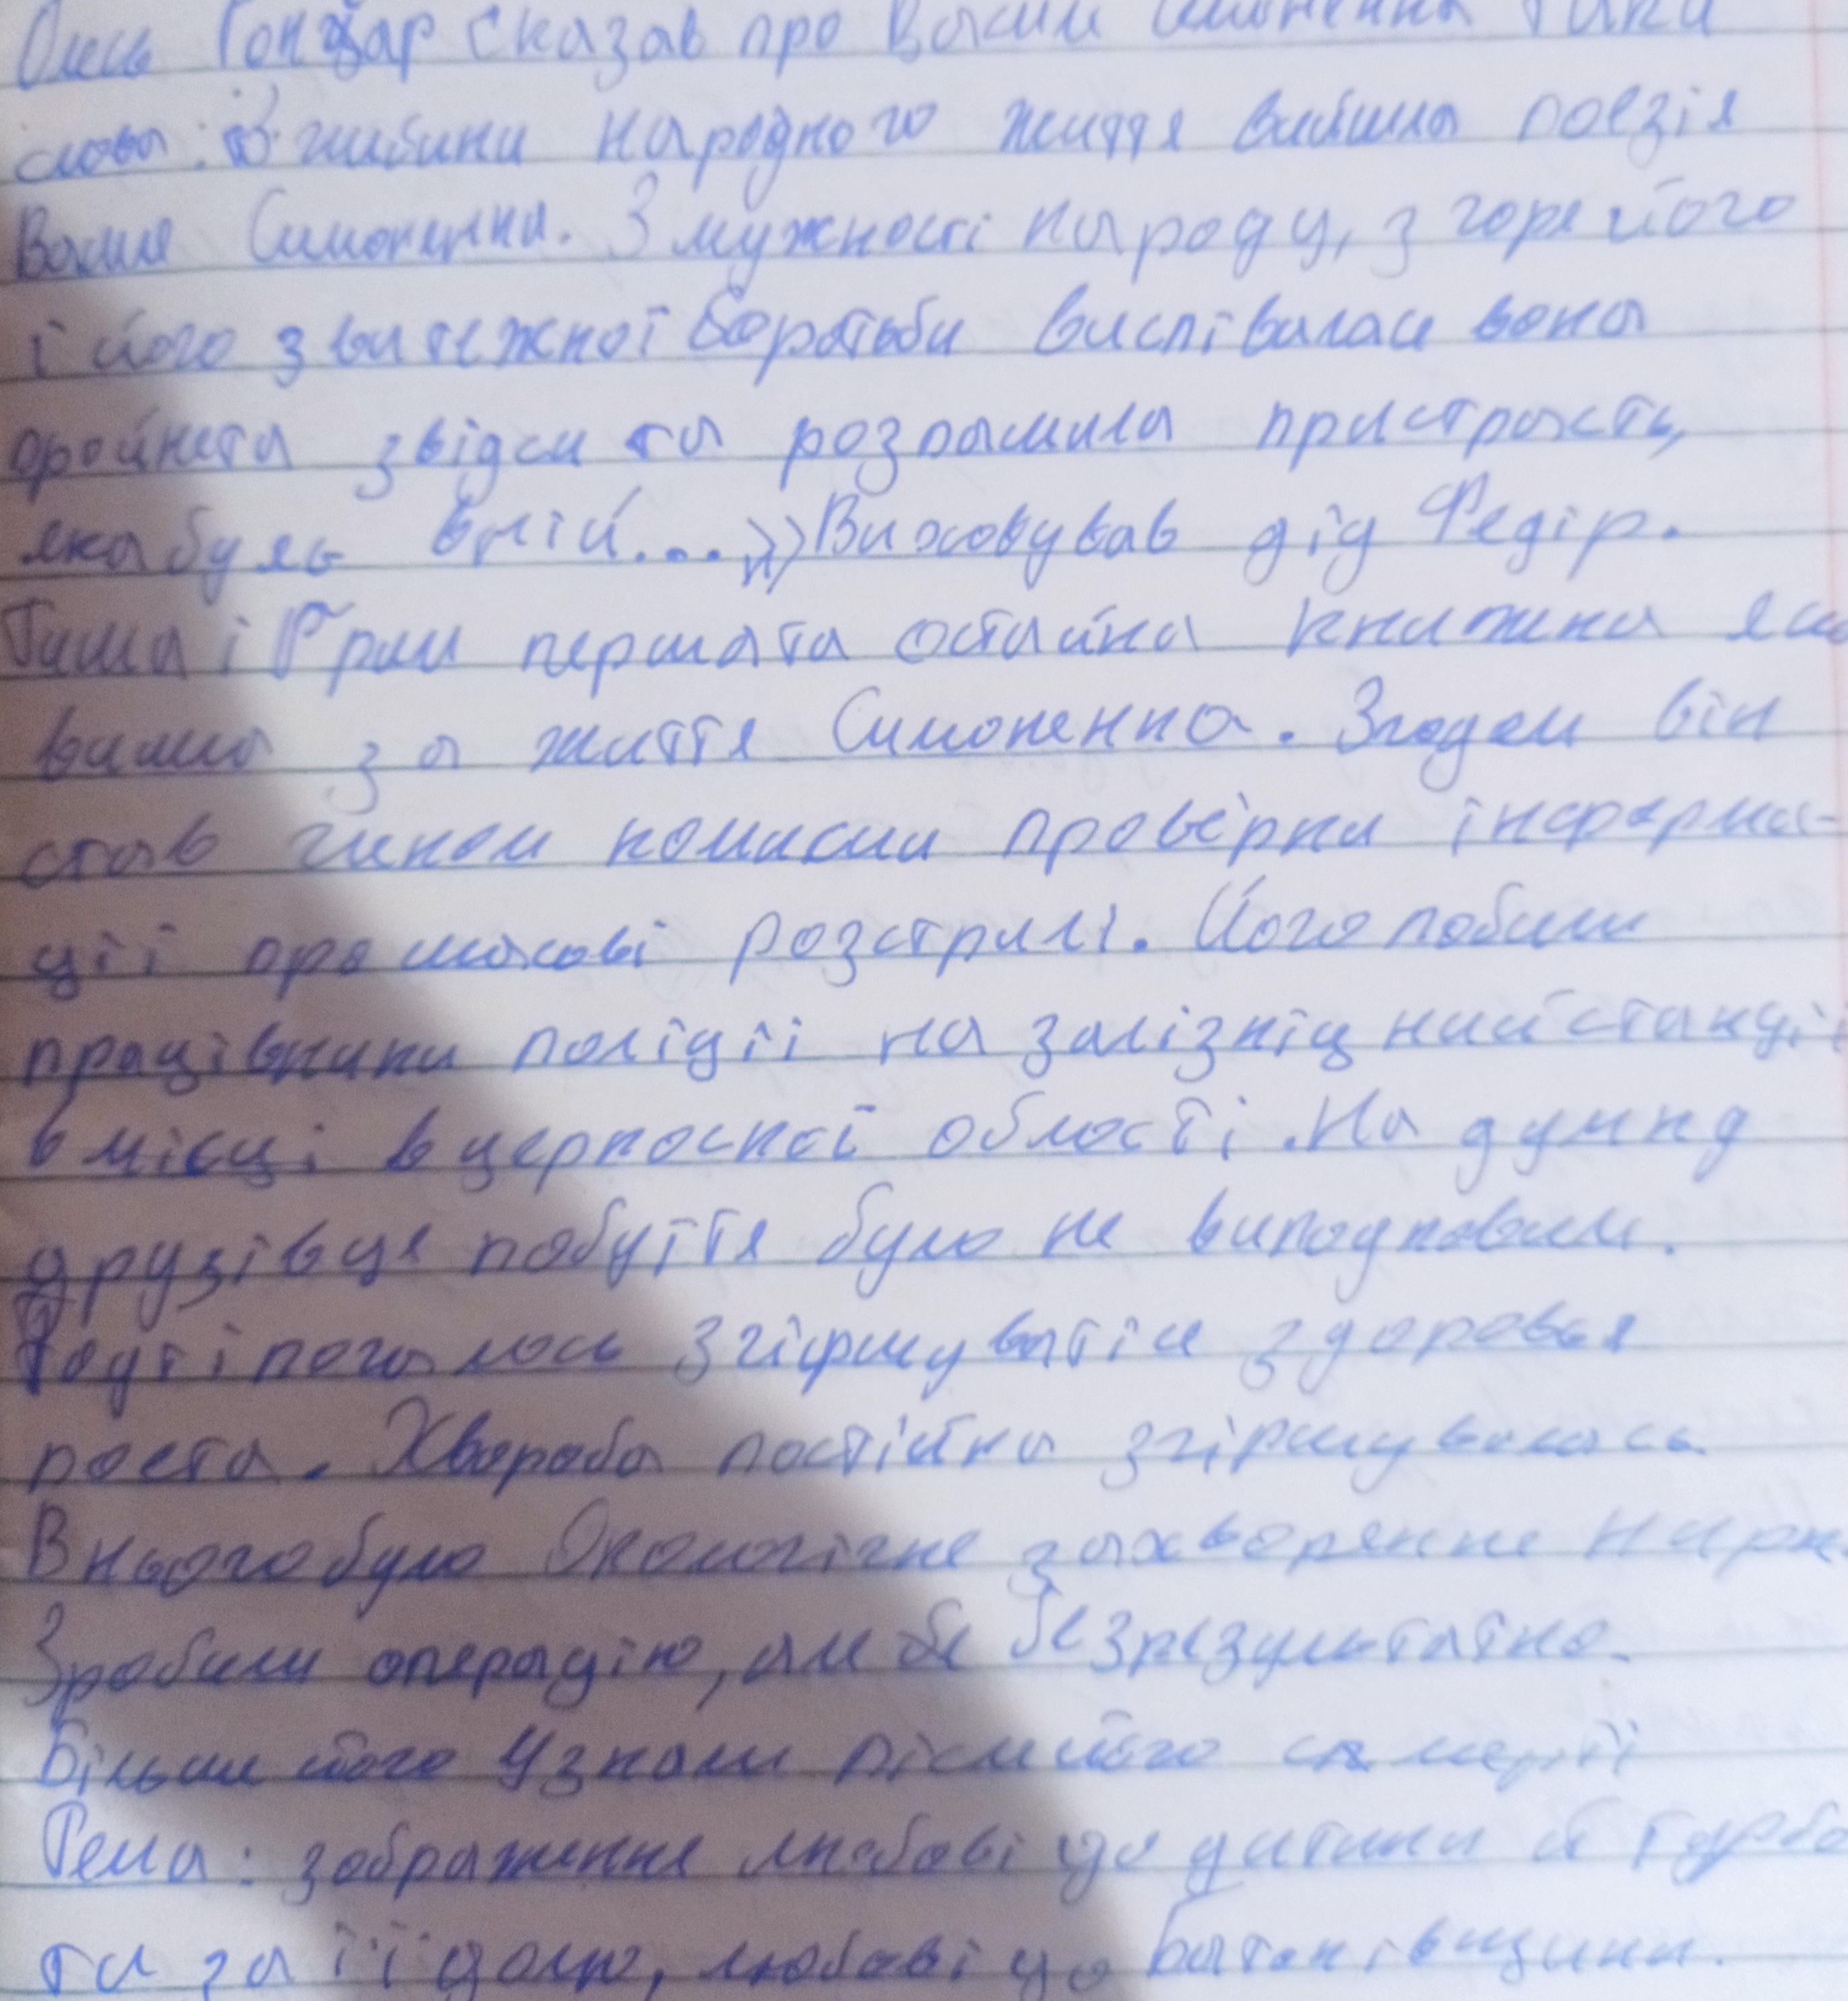 Олесь Гончар сказав про Василя Симоненка таки
слова: З глибини народного життя вийшла поезія
Василя Симоненка. З мужності народу, з горя його
і його звитяжної боротьби виспівалась вона
пройнята звідси та розпашила пристрасть,
яка була в ній...» Виховував дід Федір.
Тиша і Грім перша та остання книжка яка
вишла за життя Симоненка. Згодом він
став членом комисии проверки інформа-
ції про масові розстрилі. Його побили
працівники поліції на залізніцний станції
в місці в церкаській області. На думку
друзів це побуття було не випадковим.
Тоді почалось згіршуватіся здоровья
поета. Хвороба постійна згіршувалась
В нього було Онкологічне захворення нирк.
Зробили операцію, але безрезультатно.
Більше його узнали після його смерті
Тема: зображення любові до дитини й турбо
ти за її долю, любові до Батьківщини.